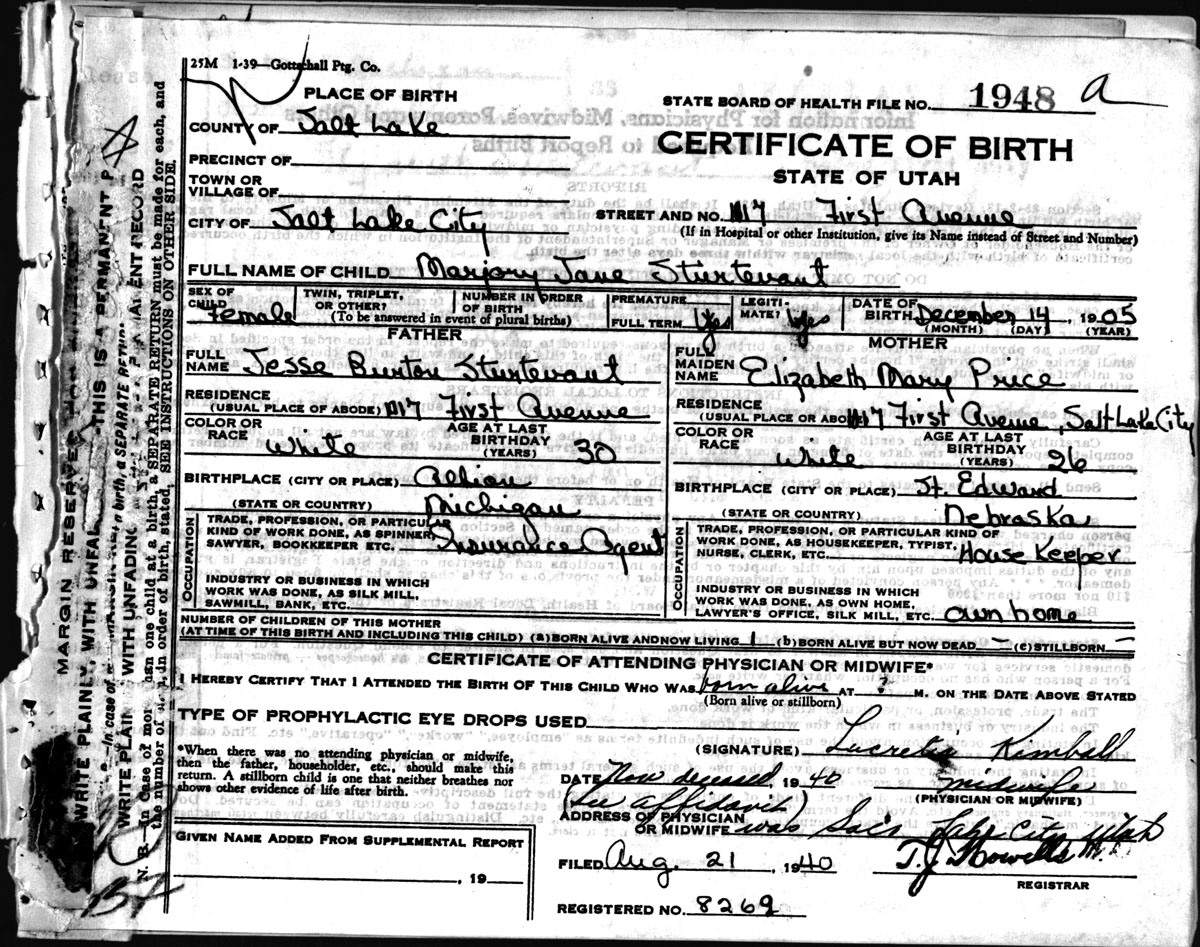 25M 1-39—Gottschall Ptg. Co.
PLACE OF BIRTH
STATE BOARD OF HEALTH FILE NO. 1948 a
COUNTY OF Salt Lake
CERTIFICATE OF BIRTH
PRECINCT OF
STATE OF UTAH
TOWN OR
VILLAGE OF
CITY OF Salt Lake City
STREET AND NO. 1117 First Avenue
(If in Hospital or other Institution, give its Name instead of Street and Number)
FULL NAME OF CHILD Marjory Jane Sturtevant
SEX OF CHILD Female
TWIN, TRIPLET, OR OTHER?
NUMBER IN ORDER OF BIRTH
(To be answered in event of plural births)
PREMATURE
FULL TERM Yes
LEGITI-
MATE? Yes
DATE OF BIRTH December 14, 1905
(MONTH) (DAY) (YEAR)
FATHER
FULL NAME Jesse Burton Sturtevant
RESIDENCE
(USUAL PLACE OF ABODE) 1117 First Avenue
COLOR OR RACE White
AGE AT LAST BIRTHDAY (YEARS) 30
BIRTHPLACE (CITY OR PLACE) Albion
(STATE OR COUNTRY) Michigan
OCCUPATION
TRADE, PROFESSION, OR PARTICULAR
KIND OF WORK DONE, AS SPINNER,
SAWYER, BOOKKEEPER ETC. Insurance Agent
INDUSTRY OR BUSINESS IN WHICH
WORK WAS DONE, AS SILK MILL,
SAWMILL, BANK, ETC.
MOTHER
FULL MAIDEN NAME Elizabeth Mary Price
RESIDENCE
(USUAL PLACE OR ABODE) 1117 First Avenue, Salt Lake City
COLOR OR RACE White
AGE AT LAST BIRTHDAY (YEARS) 26
BIRTHPLACE (CITY OR PLACE) St. Edward
(STATE OR COUNTRY) Nebraska
OCCUPATION
TRADE, PROFESSION, OR PARTICULAR KIND OF
WORK DONE, AS HOUSEKEEPER, TYPIST,
NURSE, CLERK, ETC. House Keeper
INDUSTRY OR BUSINESS IN WHICH
WORK WAS DONE, AS OWN HOME,
LAWYER'S OFFICE, SILK MILL, ETC. own home
NUMBER OF CHILDREN OF THIS MOTHER
(AT TIME OF THIS BIRTH AND INCLUDING THIS CHILD) (a) BORN ALIVE AND NOW LIVING 1 (b) BORN ALIVE BUT NOW DEAD — (c) STILLBORN —
CERTIFICATE OF ATTENDING PHYSICIAN OR MIDWIFE*
I HEREBY CERTIFY THAT I ATTENDED THE BIRTH OF THIS CHILD WHO WAS born alive AT ? M. ON THE DATE ABOVE STATED
(Born alive or stillborn)
TYPE OF PROPHYLACTIC EYE DROPS USED
*When there was no attending physician or midwife,
then the father, householder, etc., should make this
return. A stillborn child is one that neither breathes nor
shows other evidence of life after birth.
(SIGNATURE) Lucretia Kimball
DATE Now deceased, 1940
midwife
(PHYSICIAN OR MIDWIFE)
(See affidavit)
ADDRESS OF PHYSICIAN
OR MIDWIFE was Salt Lake City Utah
GIVEN NAME ADDED FROM SUPPLEMENTAL REPORT
, 19
FILED Aug. 21, 1940
T.J. Howells
REGISTRAR
REGISTERED NO. 8269
MARGIN RESERVED FOR
WRITE PLAINLY, WITH UNFA THIS IS A PERMANENT
WRITE PLAIN WITH UNFADING
N. B. In case of more than one child at a birth, a SEPARATE RETURN must be made for each, and
the number of in order of birth, stated. SEE INSTRUCTIONS ON OTHER SIDE.